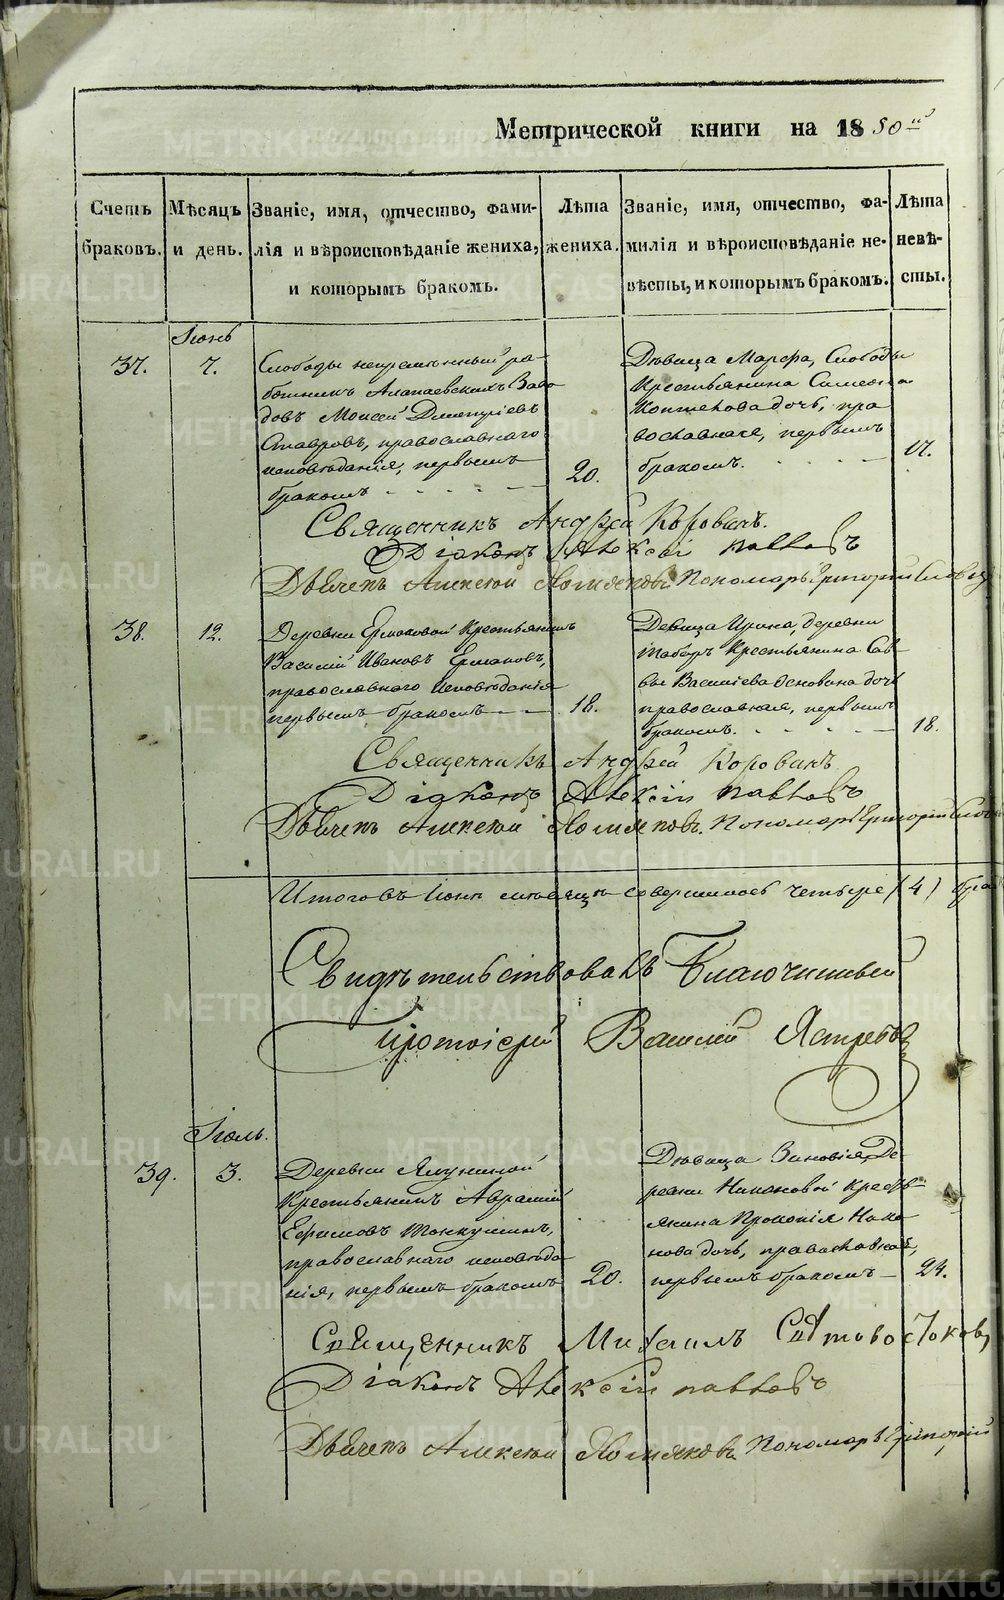 Метрической книги на 1850й
Счетъ браковъ.
Мѣсяцъ и день.
Званіе, имя, отчество, фами-
лія и вѣроисповѣданіе жениха,
и которымъ бракомъ.
Лѣта жениха.
Званіе, имя, отчество, фа-
милія и вѣроисповѣданіе не-
вѣсты, и которымъ бракомъ.
Лѣта невѣ-
сты.
Іюнь
37. 7.
Слободы непремѣнный ра-
ботникъ Алапаевскихъ Заво
довъ Моисей Димитріевъ
Ставровъ, православнаго
исповѣданія, первымъ
бракомъ
20.
Дѣвица Марѳа, Слободы
Крестьянина Симеона
дочь, пра
вославная, первымъ
бракомъ.
17.
Священникъ Андрей Коровинъ.
Діаконъ Алексій Павловъ
Дьячекъ Алексѣй Хомяковъ Пономарь Григорій
38. 12.
Деревни Ермаковой Крестьянинъ
Василій Ивановъ Ермаковъ,
православнаго исповѣданія
первымъ бракомъ
18.
Девица Ирина, деревни
Таборъ Крестьянина Сав-
вы Васильева дочь
православная, первымъ
бракомъ.
18.
Священникъ Андрей Коровинъ
Діаконъ Алексій Павловъ
Дьячекъ Алексѣй Хомяковъ. Пономарь Григорій
Итого въ Іюнѣ мѣсяцѣ совершилось четыре (4) бра
Свидѣтельствовалъ Благочинный
Протоіерей Василій Ястребов
Іюль.
39. 3.
Деревни Ялуниной
Крестьянинъ Аврамій
Ефимовъ
православнаго исповѣда
нія, первымъ бракомъ
20.
Дѣвица Зиновія, Де
ревни Никоновой Кресть-
янина Прокопія Нико
нова дочь, православная,
первымъ бракомъ
24.
Священникъ Михаилъ
Діаконъ Алексій Павловъ
Дьячекъ Алексѣй Хомяковъ Пономарь Григорій
METRIKI.GASO-URAL.RU